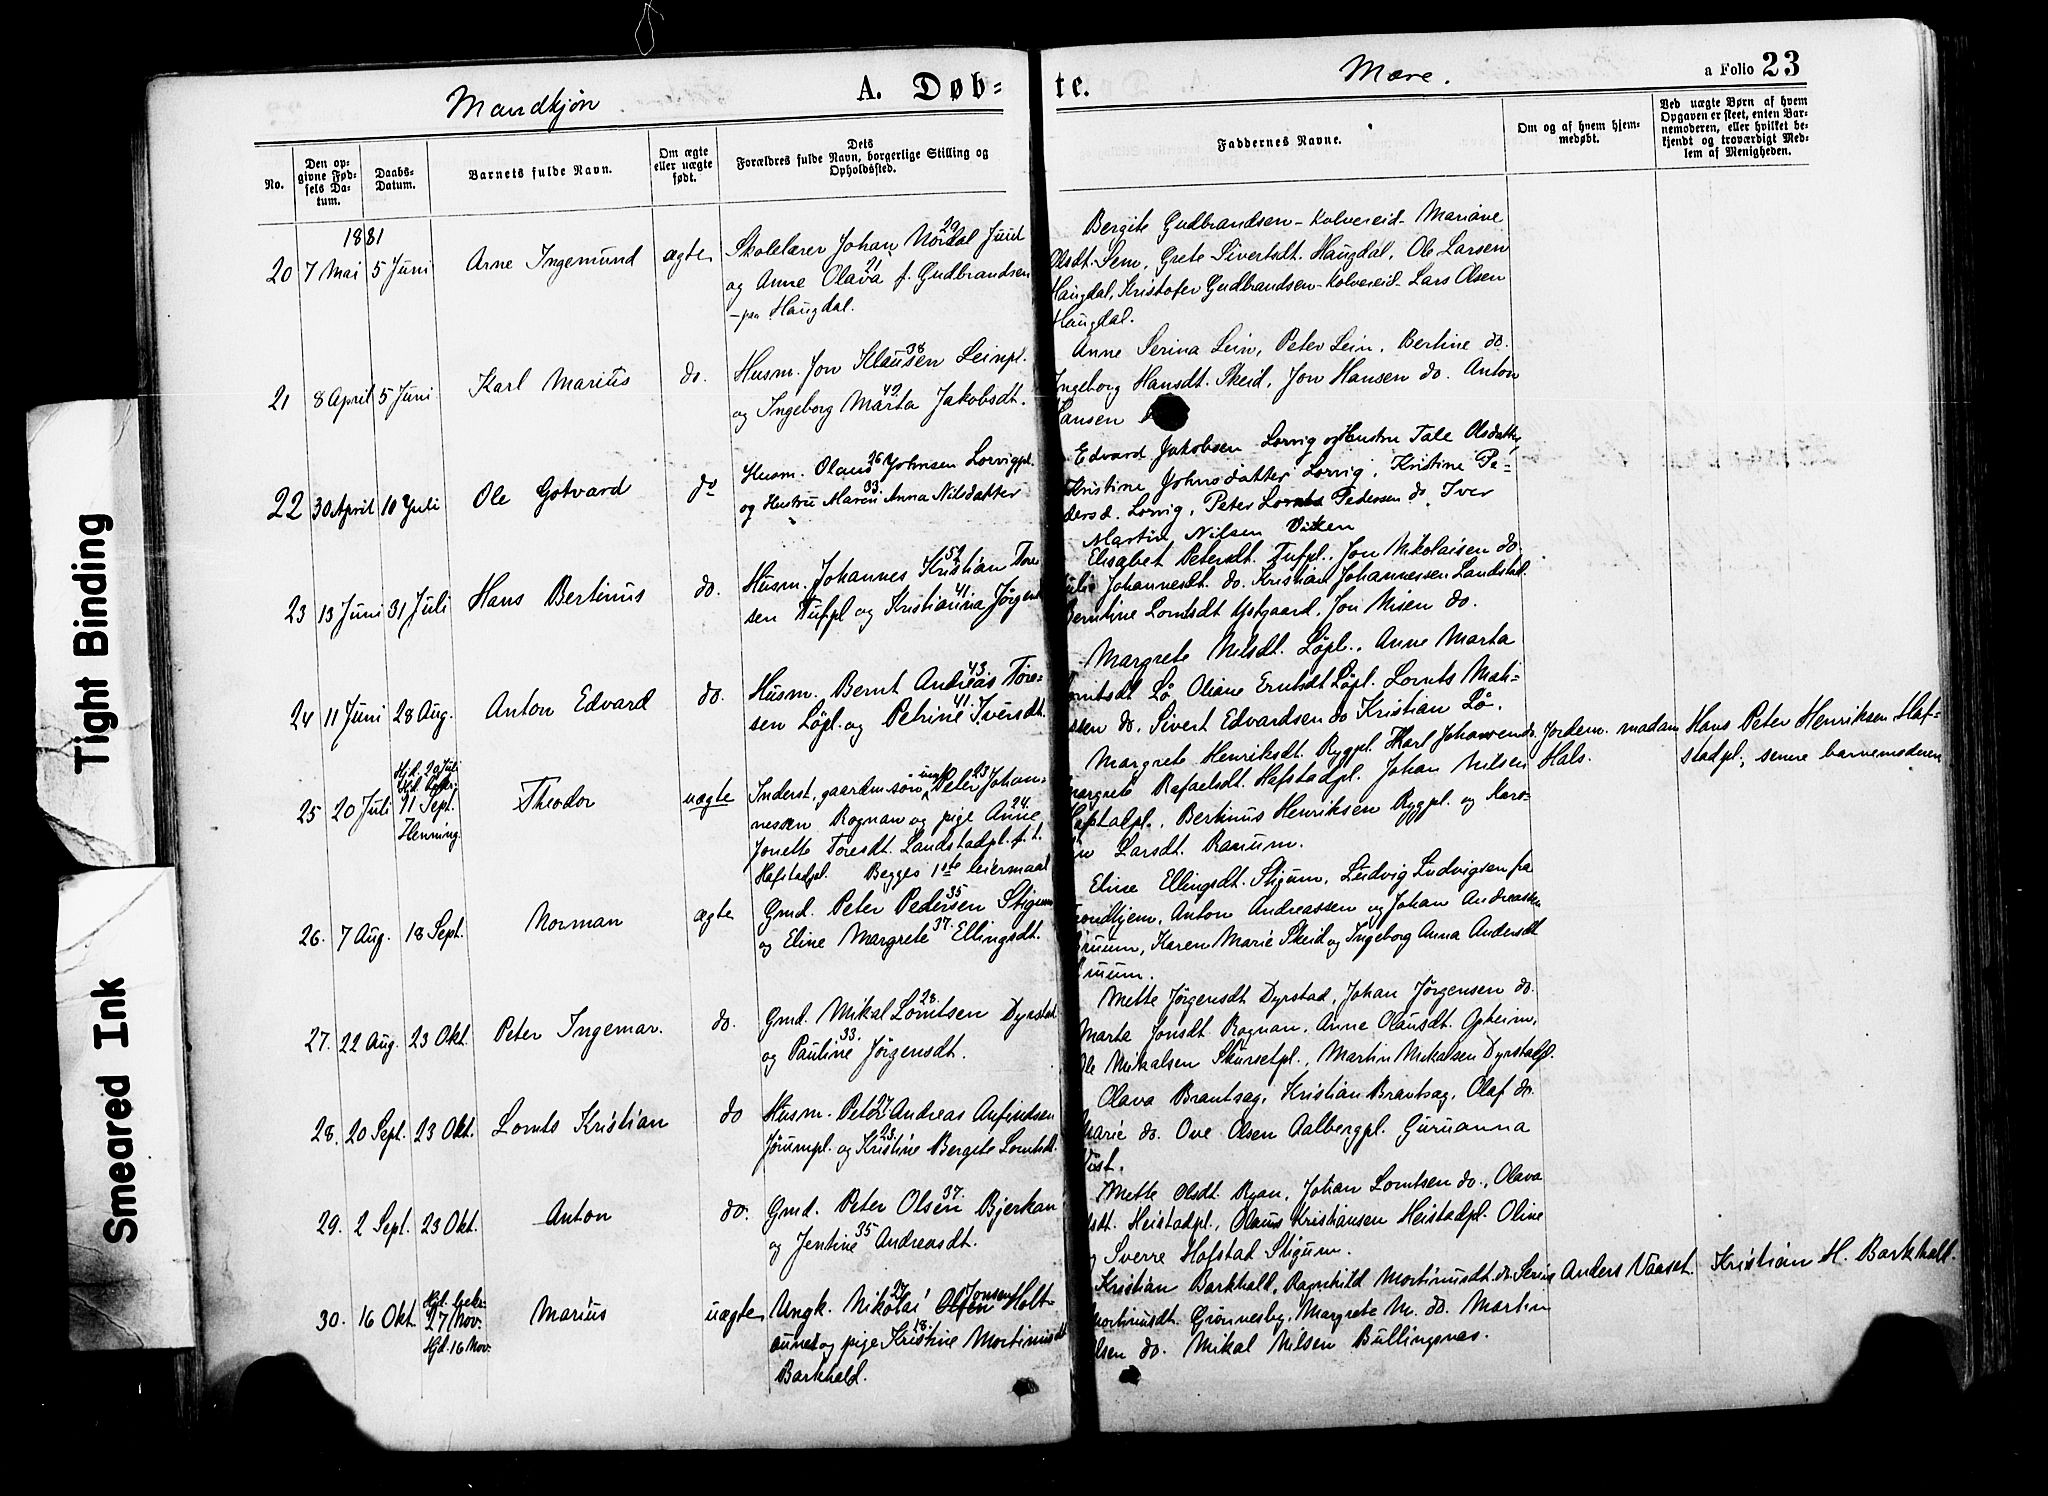 Mandkjøn
A. Døb=
te.
Mære.
a Folio 23
No.
Den op-
givne Fød-
sels Da-
tum.
Daabs-
Datum.
Barnets fulde Navn.
Om ægte
eller uægte
født.
Dets
Forældres fulde Navn, borgerlige Stilling og
Opholdssted.
Faddernes Navne.
Om og af hvem hjem-
medøbt.
Ved uægte Børn af hvem
Opgaven er skeet, enten Bar-
nemoderen, eller hvilket be-
kjendt og troværdigt Med-
lem af Menigheden.
1881
20 7 Mai 5 Juni Arne Ingemund ægte
Skolelærer Johan Nordal Juul 29
og Anne Olava 21 f. Gudbrandsen
- paa Haugdal.
Bergite Gudbrandsen - Kolvereid - Mariane
Olsdt. Sem, Grete Sivertsdt. Haugdal, Ole Larsen
Haugdal, Kristofer Gudbrandsen - Kolvereid - Lars Olsen
Haugdal.
21 8 April 5 Juni Karl Marius do.
Husm. Jon Klausen 38 Leinpl.
og Ingeborg Marta 42 Jakobsdt.
Anne Serina Lein, Peter Lein, Bertine do.
Ingeborg Hansdt. Skeid, Jon Hansen do. Anton
Hansen
22 30 April 10 Juli Ole Gotvard do
Husm. Olaus 26 Johnsen Lorvigpl.
og Hustru Maren 33 Anna Nilsdatter
Edvard Jakobsen Lorvig og Hustru Tale Olsdatter,
Kristine Johnsdatter Lorvig, Kristine Pe-
dersd. Lorvig, Peter Pedersen do, Iver
Martin Nilsen Viken
23 13 Juni 31 Juli Hans Bertinus do.
Husm. Johannes Kristian 52 Tore
sen Tufpl og Kristianna 41 Jørgen
Elisabet Petersdt. Tufpl., Jon Nikolaisen do.
Julie Johannesdt. do. Kristian Johannessen Landstad.
Berntine Lorntsdt Ystgaard, Jon Nisen do.
24 11 Juni 28 Aug. Anton Edvard do.
Husm. Bernt Andreas 43 Tore-
sen Løpl. og Petrine 41 Iversdt.
Margrete Nilsdt. Løpl., Anne Marta
Lorntsdt Lø, Oliane Erntsdt Løpl. Lornts Mati-
sen do. Sivert Edvardsen do Kristian Lø.
25 20 Juli Hjd. 20 Juli
21 Sept.
Henning.
Theodor uægte
Inderst, gaardm.søn, ungk. Peter 23 Johan-
nessen Rognan og pige Anne 24
Jonette Toresdt. Landstadpl. f. t.
Hafstadpl. Begges 1ste leiermaal
Margrete Henriksdt. Rygpl. Karl Johansen do.
Margrete Rafaelsdt. Hafstadpl. Johan Nilsen
Hafstadpl., Bertinus Henriksen Rygpl. og Karo-
Larsdt. Ranum.
Jordem. madam
Hals.
Hans Peter Henriksen Haf-
stadpl., senere barnemoderen
26. 7 Aug. 18 Sept. Norman ægte
Gmd. Peter Pedersen 35 Stigum
og Eline Margrete 37. Ellingsdt.
Eline Ellingsdt. Stigum, Ludvig Ludvigsen fra
Trondhjem, Anton Andreassen og Johan Andreassen
Karen Marie Skeid og Ingeborg Anna Andersdt
27. 22 Aug. 23 Okt. Peter Ingemar. do.
Gmd. Mikal Lorntsen 28. Dyrstad
og Pauline 33. Jørgensdt.
Mette Jørgensdt Dyrstad, Johan Jørgensen do.
Marta Jonsdt Rognan, Anne Olausdt. Opheim,
Ole Mikalsen Skursetpl., Martin Mikalsen Dyrstadpl.
28. 20 Sept. 23 Okt. Lornts Kristian do
Husm. Peter 27 Andreas Anfindsen
Jørumpl. og Kristine 23. Bergete Lorntsdt.
Olava Brantsag, Kristian Brantsag, Olaf do.
Marie do. Ove Olsen Aalbergpl. Guruanna
Vist.
29. 2 Sept. 23 Okt. Anton do.
Gmd. Peter Olsen 37. Bjerkan
og Jentine 35 Andreasdt.
Mette Olsdt. Ryan, Johan Lorntsen do., Olava
Olsdt. Heistadpl., Olaus Kristiansen Heistadpl. Oline
og Sverre Hofstad Stigum.
30. 16 Okt.
27 Nov.
Hjd. 16 Nov.
Marius uægte
Ungk. Nikolai 27 Jonsen Holt-
aunet og pige Kristine 18. Mortinusdt
Barkhald.
Kristian Barkhald, Ragnhild Mortinusdt. do. Serine
Mortinusdt. Grønnesby, Margrete M. do. Martin
Olsen do. Mikal Nilsen Bullingsnas.
Anders Vaaset
Kristian H. Barkhald.
Tight Binding
Smeared Ink